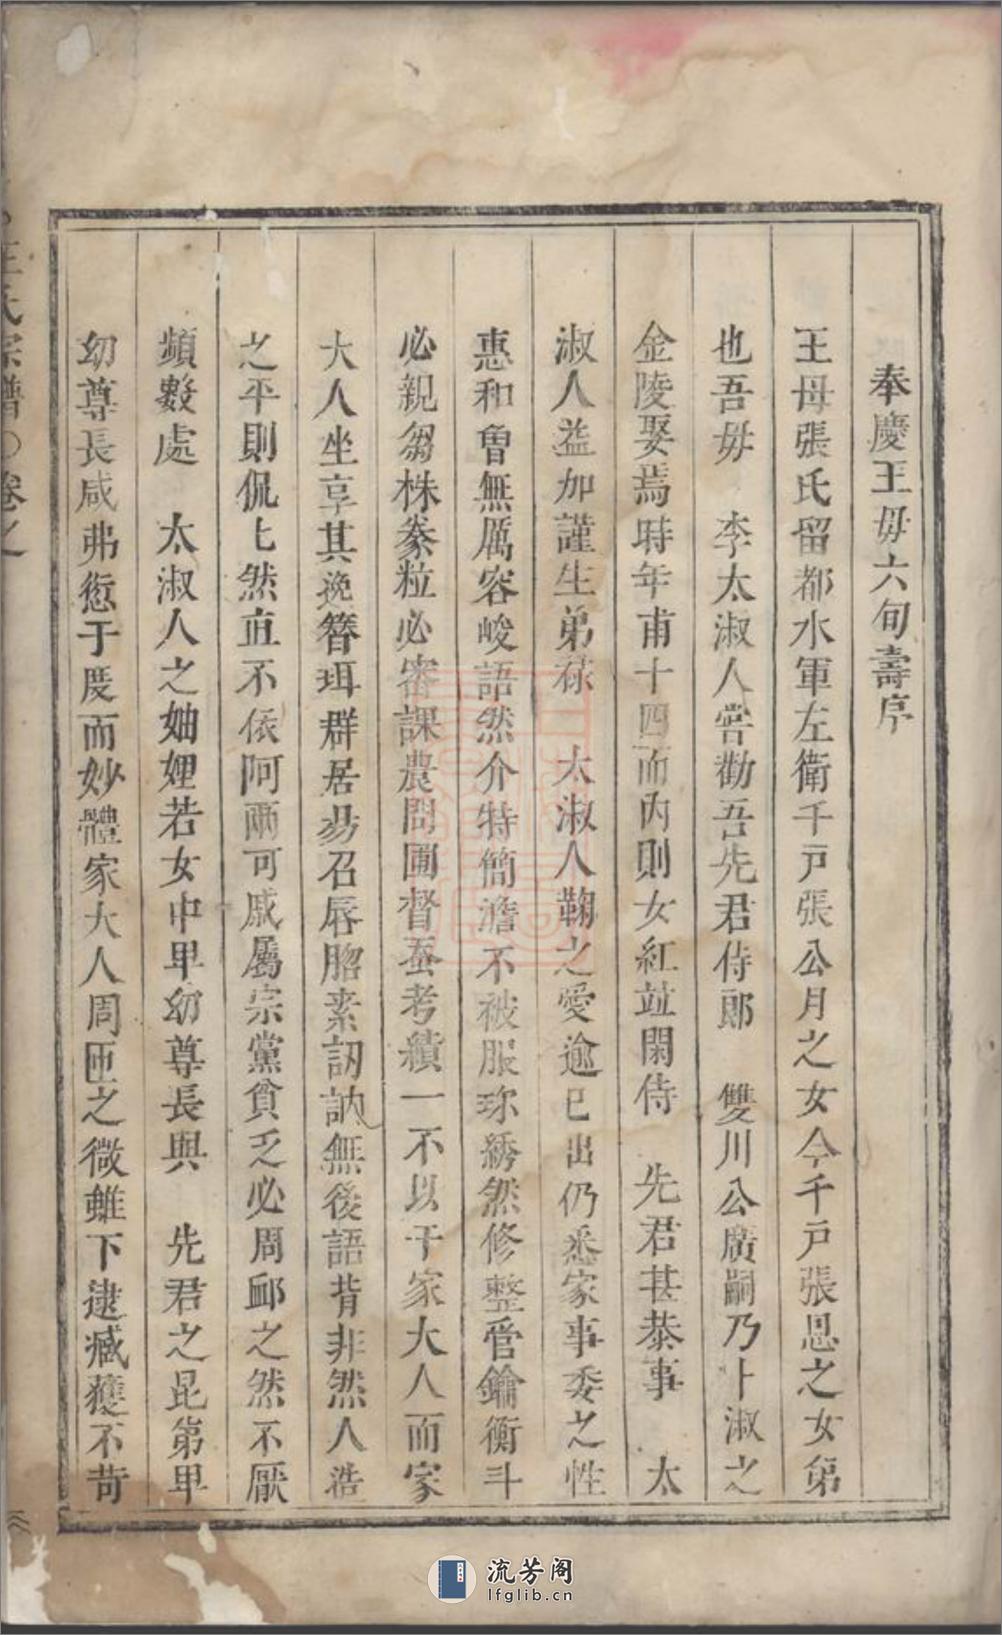 奉慶王母六旬壽序
王母張氏留都水軍左衛千戸張公月之女今千戸張恩之女第
也吾母　李太淑人嘗勸吾先君侍郎　雙川公廣嗣乃卜淑之
金陵娶焉時年甫十四而内則女紅竝閑侍　先君甚恭事　太
淑人益加謹生弟祿　太淑人鞠之愛逾已出仍悉家事委之性
惠和曾無厲容峻語然介特簡澹不被服珎綉然修整管鑰衡斗
必親芻株粲粒必審課農問圃督蚕考績一不以干家大人而家
大人坐享其逸簪珥群居易召辱胎素訒訥無後語背非然人造
之平則侃侃然直不依阿兩可戚屬宗黨貧乏必周卹之然不厭
頻數處　太淑人之妯娌若女中卑幼尊長與　先君之昆第卑
幼尊長咸弗愆于度而妙體家大人周匝之微雖下逮臧獲不苛
王氏宗譜○卷之
流芳阁
lfglib.cn